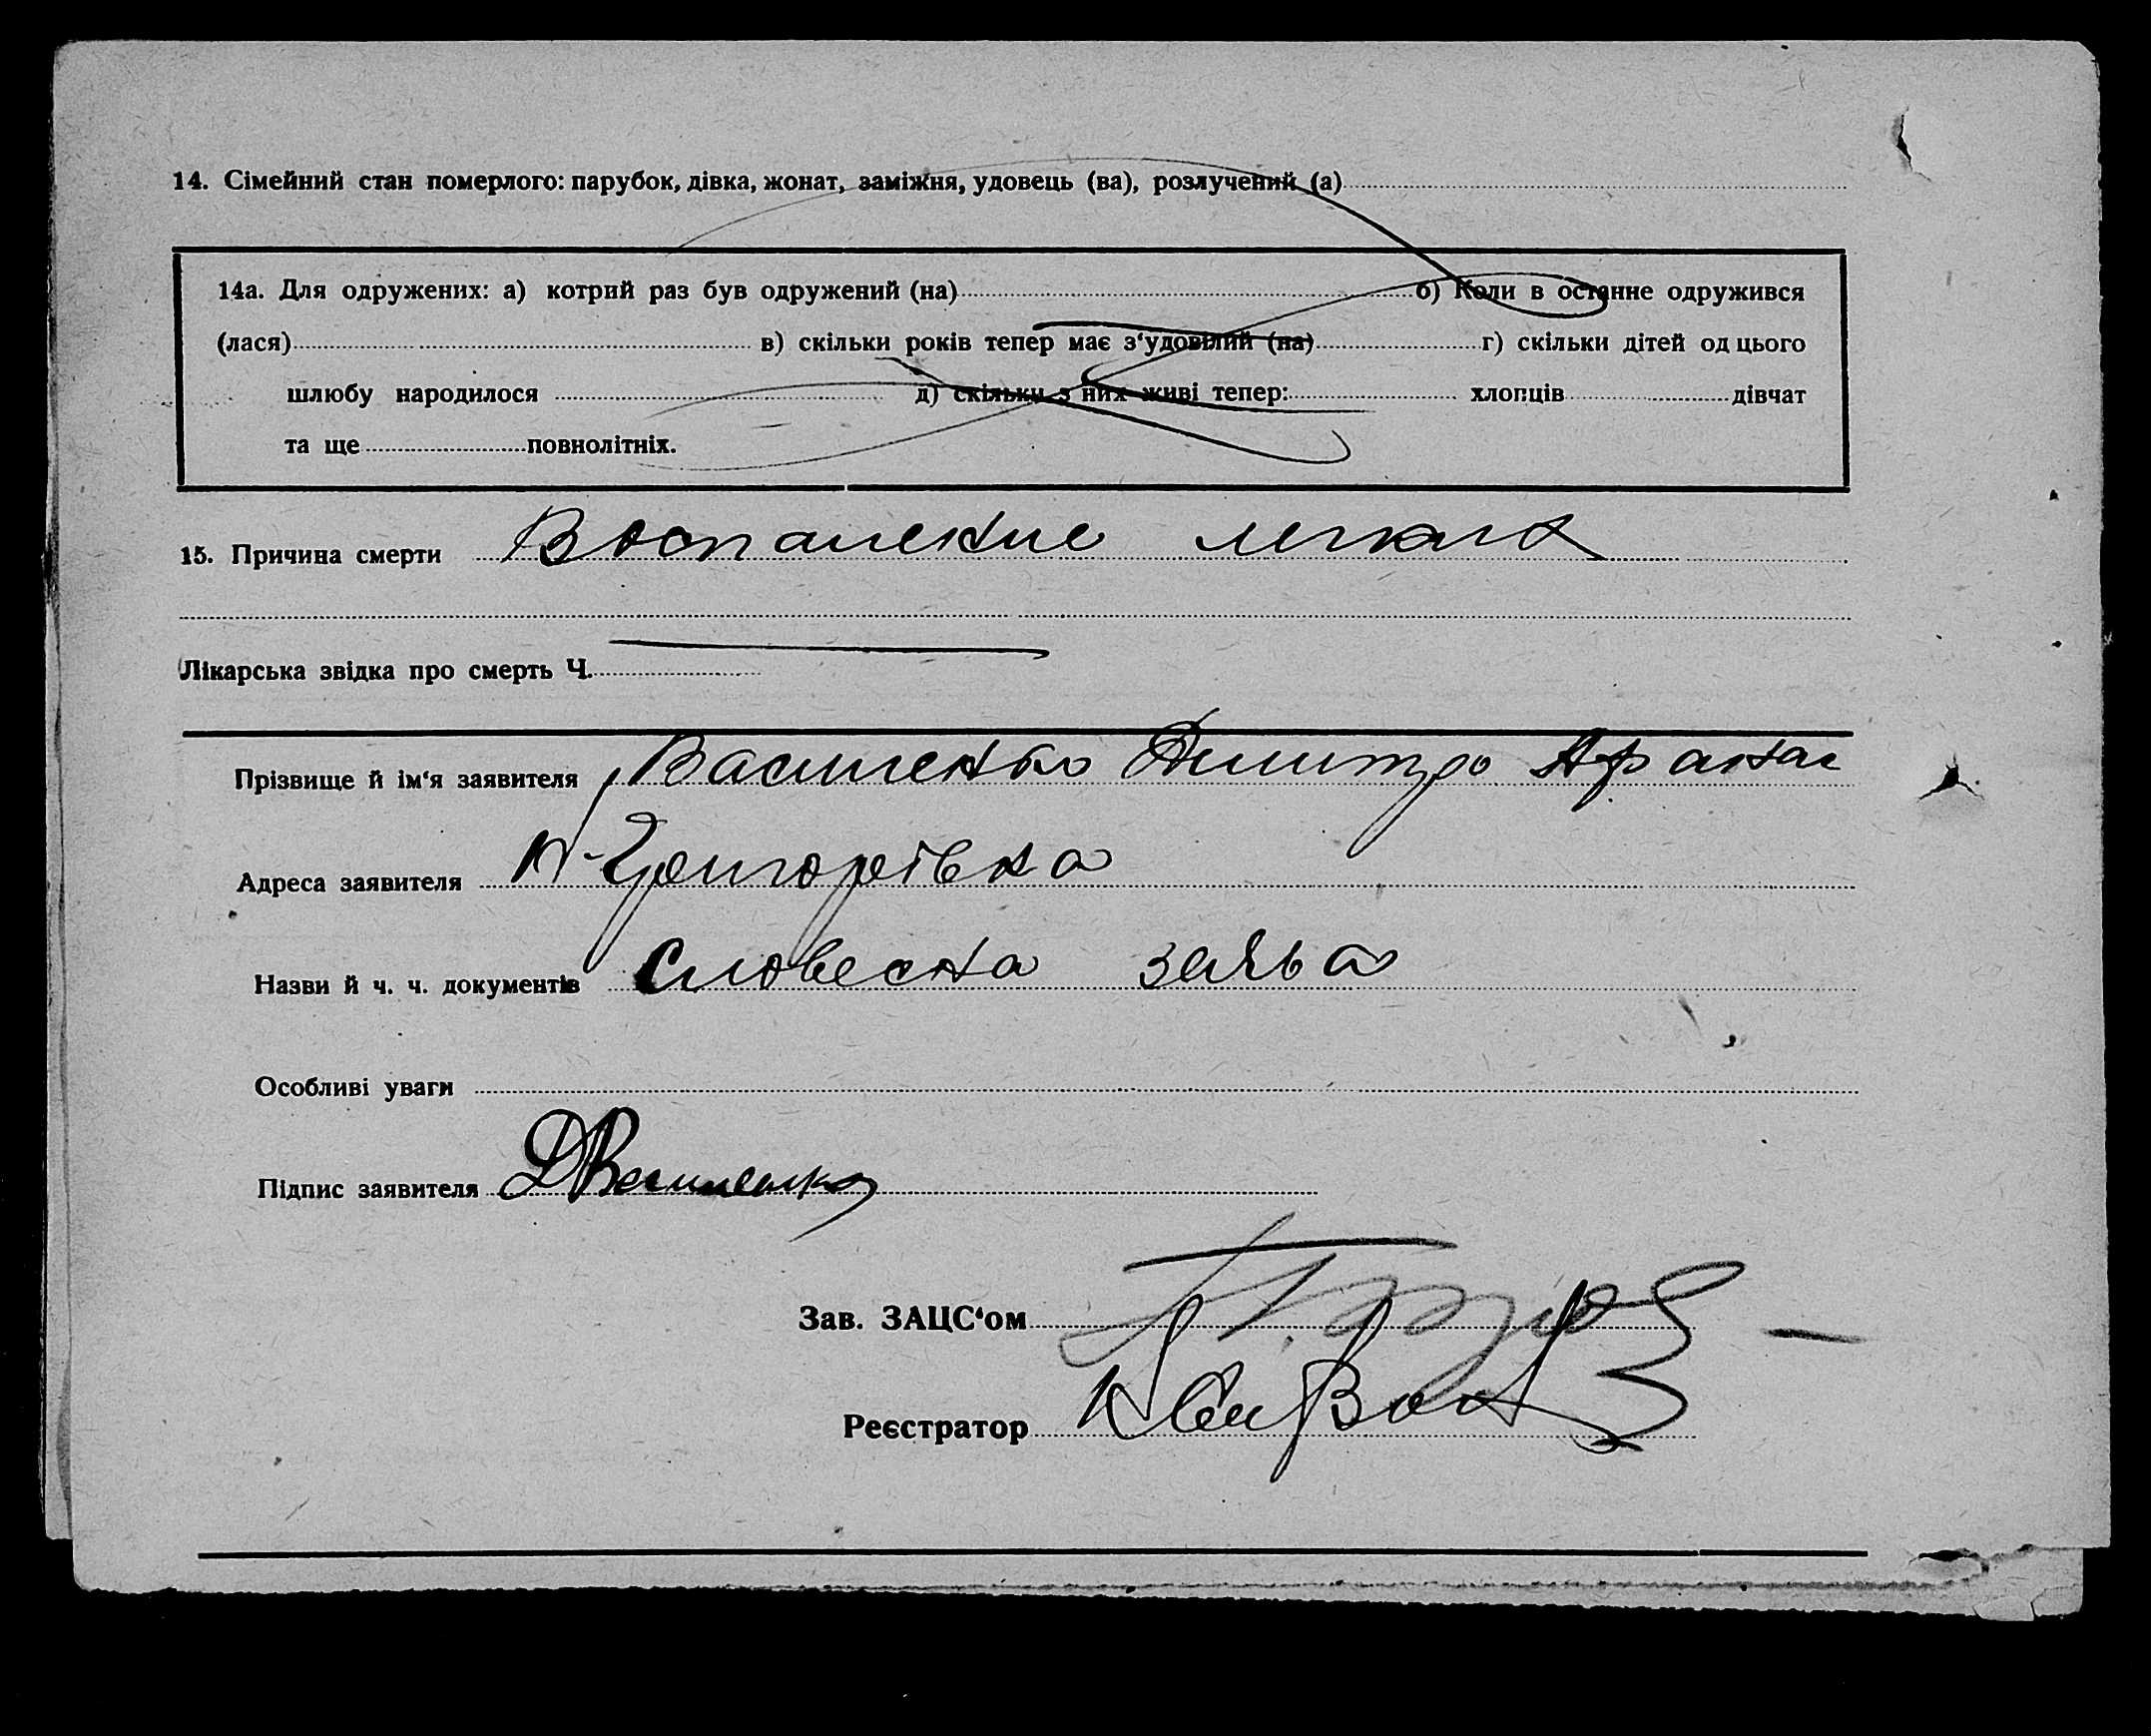 14. Сімейний стан померлого: парубок, дівка, жонат, заміжня, удовець (ва), розлучений (а)
14а. Для одружених: а) котрий раз був одружений (на) б) Коли в останне одружився
(лася) в) скільки років тепер має з‘удовілий (на) г) скільки дітей од цього
шлюбу народилося д) скільки з них живі тепер: хлопців дівчат
та ще повнолітніх.
15. Причина смерти Воспаление легких
Лікарська звідка про смерть Ч.
Прізвище й ім‘я заявителя Василенко Дмитро Афанас
Адреса заявителя Н-Григорівка
Назви й ч. ч. документів Словесна заява
Особливі уваги
Підпис заявителя ДВасиленко
Зав. ЗАЦС‘ом
Реєстратор